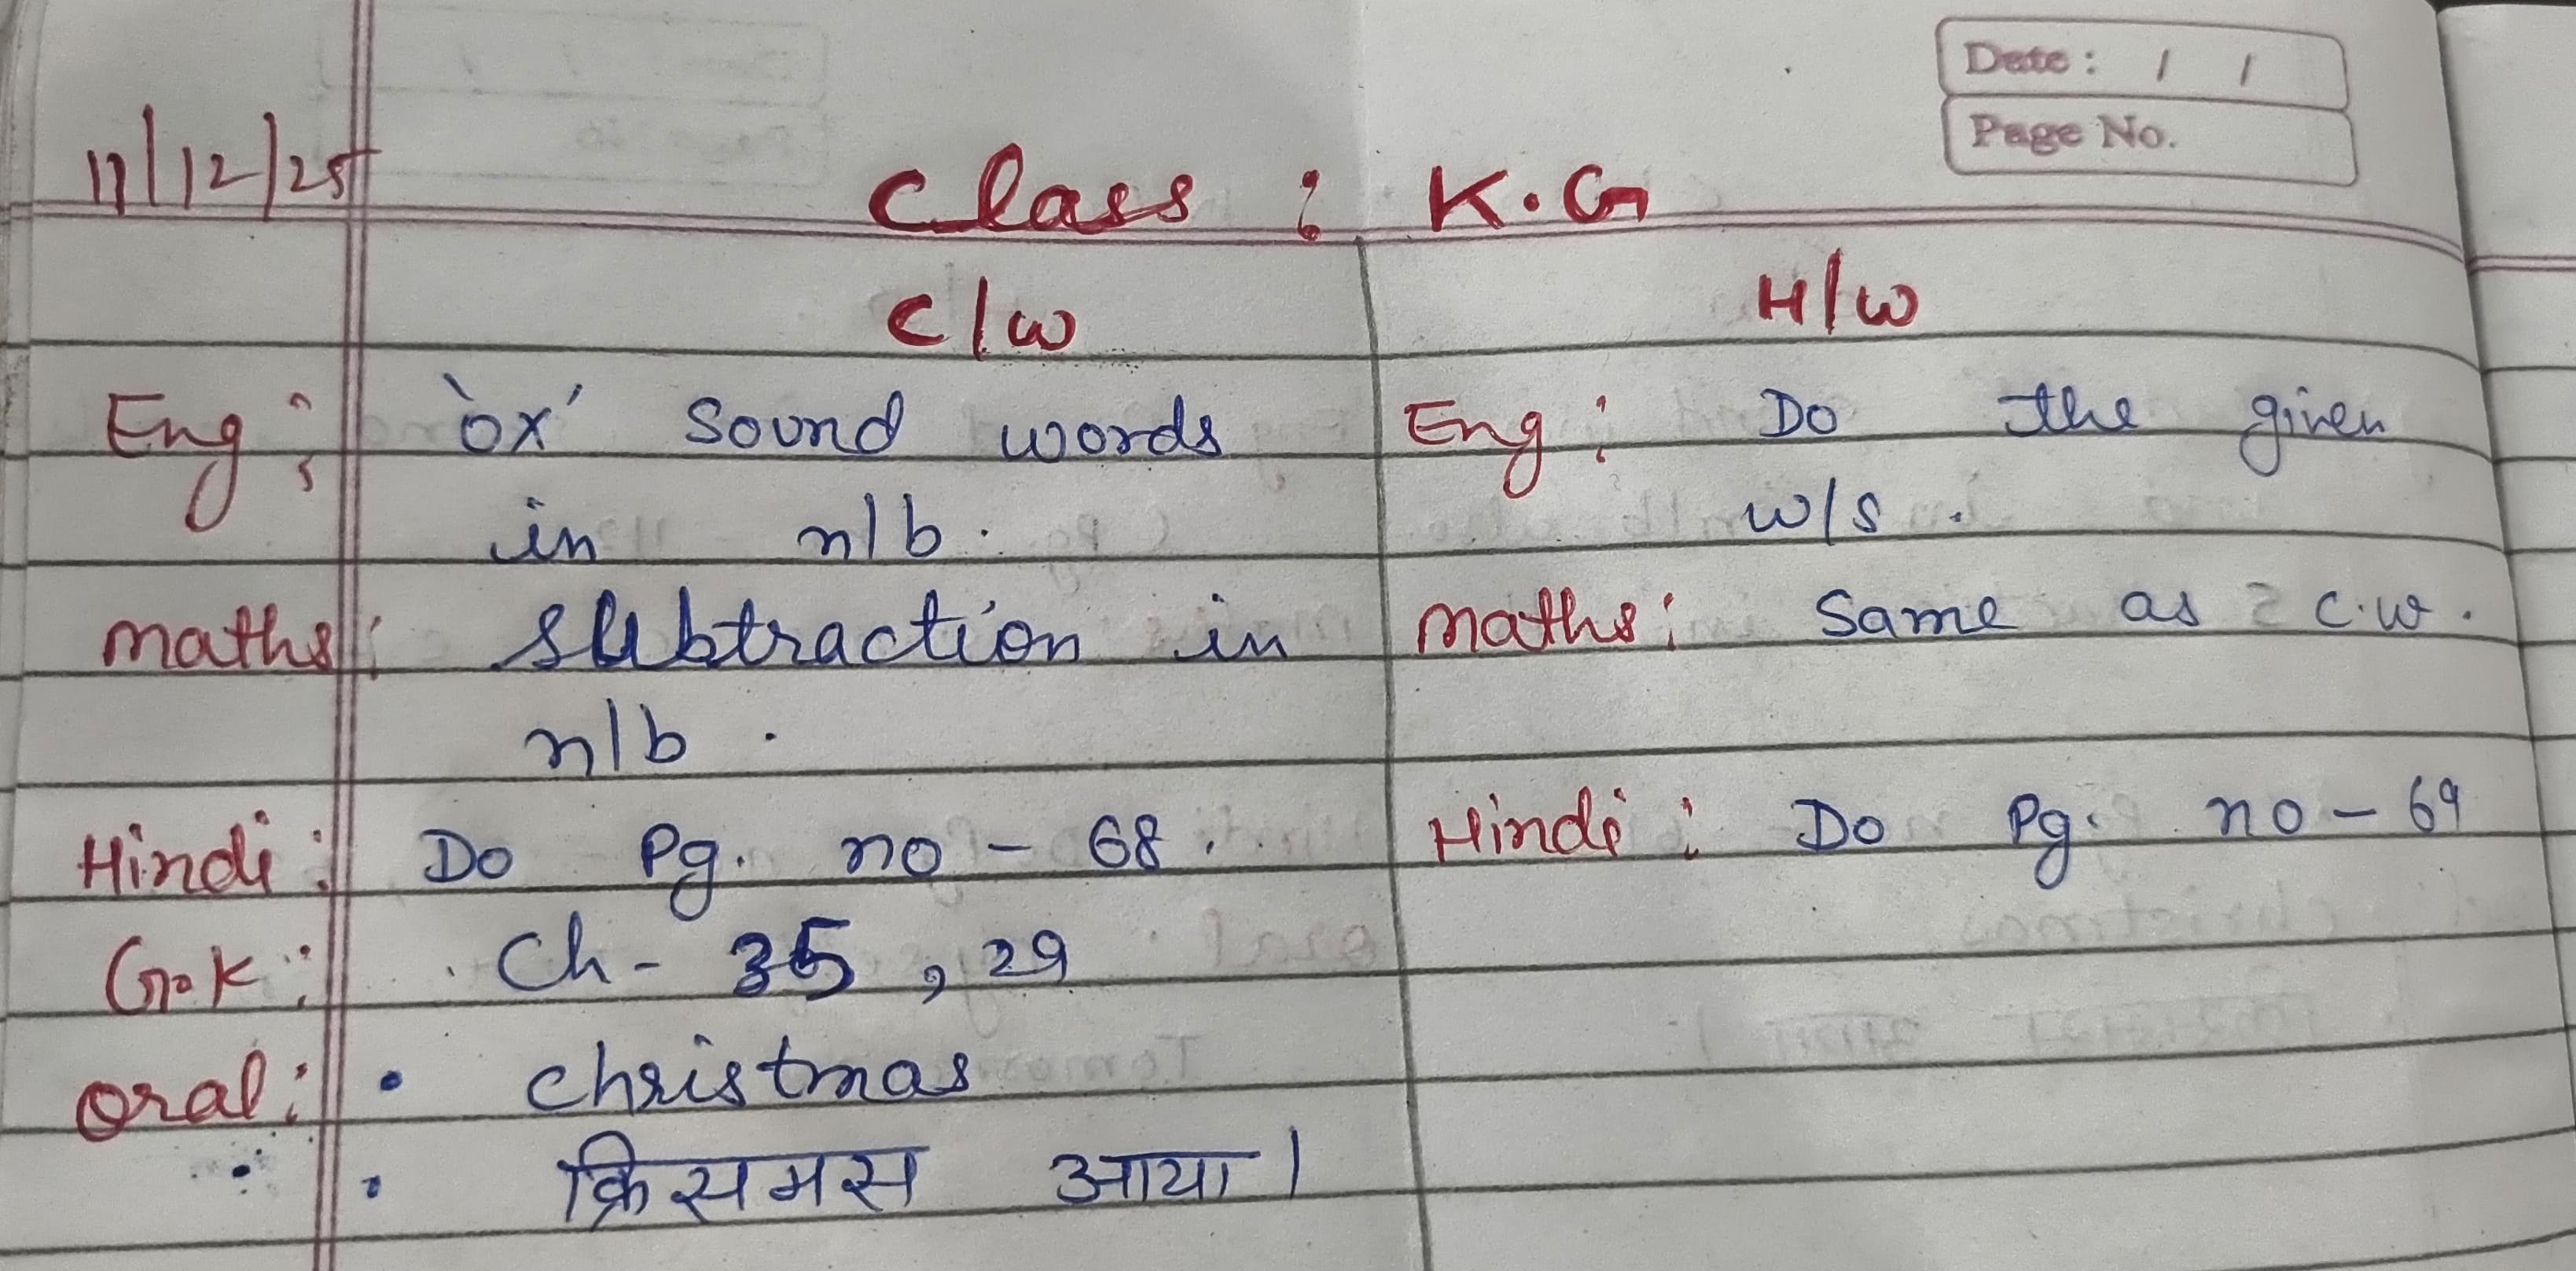 Date : / /
Page No.
11/12/25 Class : K.G
C/W H/W
Eng : 'ox' Sound words Eng : Do the given
in n/b. w/s.
maths : subtraction in maths : Same as c.w.
n/b.
Hindi : Do Pg. no - 68. Hindi : Do Pg. no - 69
G.K : Ch - 35, 29
oral : • christmas
• क्रिसमस आया।